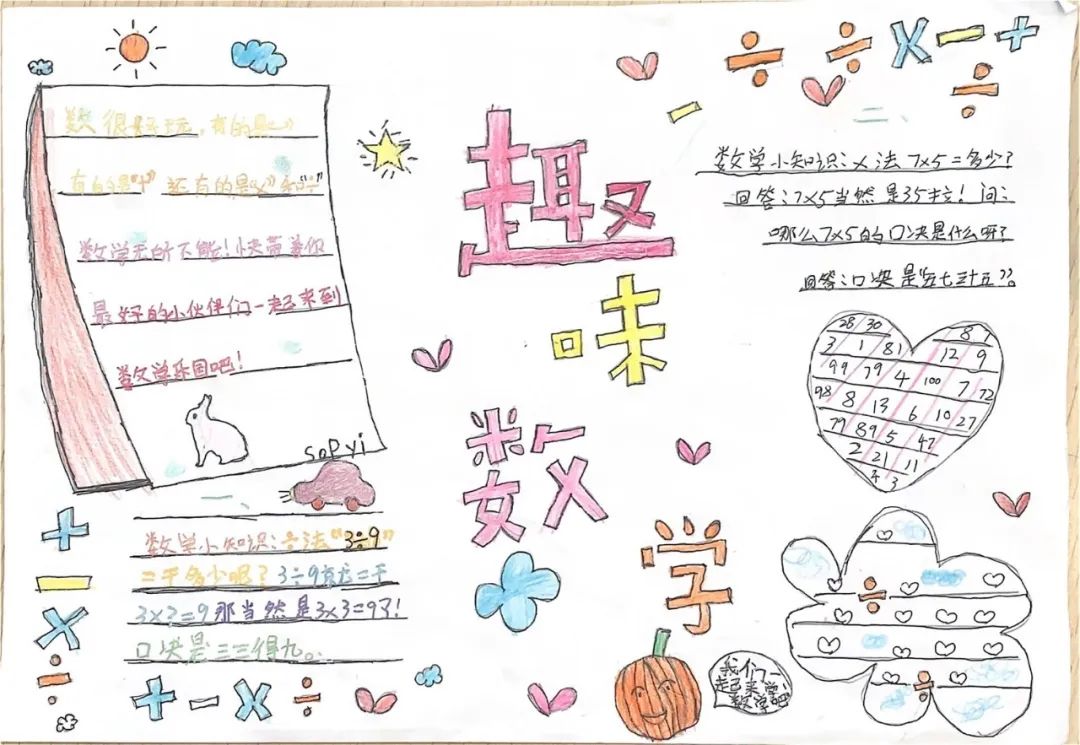 数很好玩，有的是"-"
有的是"+" 还有的是"×"和"÷"
数学无所不能！快带着你
最好的小伙伴们一起来到
数学乐园吧！
一、
数学小知识：÷法"3÷9"
＝于多少呢？3÷9就＝于
3×?＝9那当然是3×3＝9了！
口决是三三得九。
趣
味
数
学
我们一
起来学
数学吧！
÷ ÷ × － ＋
÷
－
二、
数学小知识：×法 7×5＝多少？
回答：7×5当然是35拉！问：
哪么7×5的口决是什么呀？
回答：口决是五七三十五??。
28 30 8
3 1 81 12 9
99 79 4 100 7 72
98 8 13 6 10 27
79 89 5 47
2 21 11
4 3
＋
－
×
÷
＋ － × ÷
÷
÷